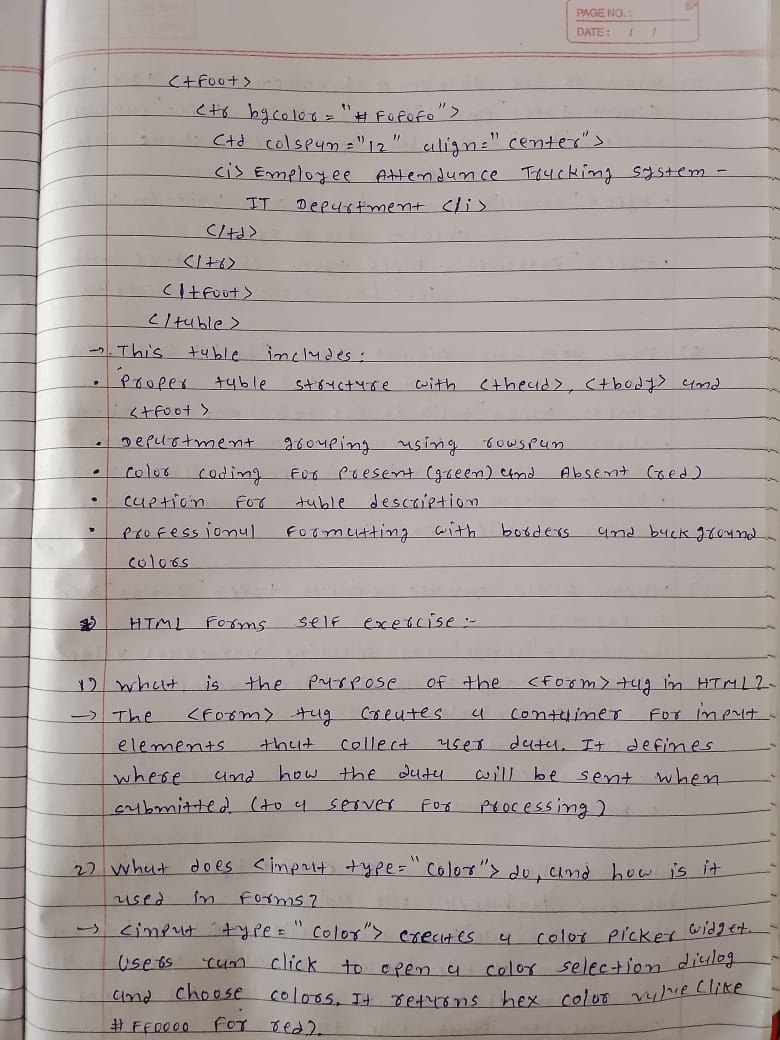 PAGE NO.:
DATE: / /
<tfoot>
<tr bgcolor="#F0F0F0">
<td colspan="12" align="center">
<i> Employee Attendance Tracking system -
IT Department </i>
</td>
</tr>
</tfoot>
</table>
→ This table includes:
• Proper table structure with <thead>, <tbody> and
<tfoot>
• Department grouping using rowspan
• color coding For Present (green) and Absent (red)
• caption For table description
• professional Formatting with borders and background
colors
HTML Forms self exercise :-
1) what is the purpose of the <form> tag in HTML?
→ The <form> tag creates a container For input
elements that collect user data. It defines
where and how the data will be sent when
submitted. (to a server For processing)
2) What does <input type="color"> do, and how is it
used in Forms?
→ <input type="color"> creates a color picker widget.
Users can click to open a color selection dialog
and choose colors. It returns hex color value (like
# FF0000 For red).